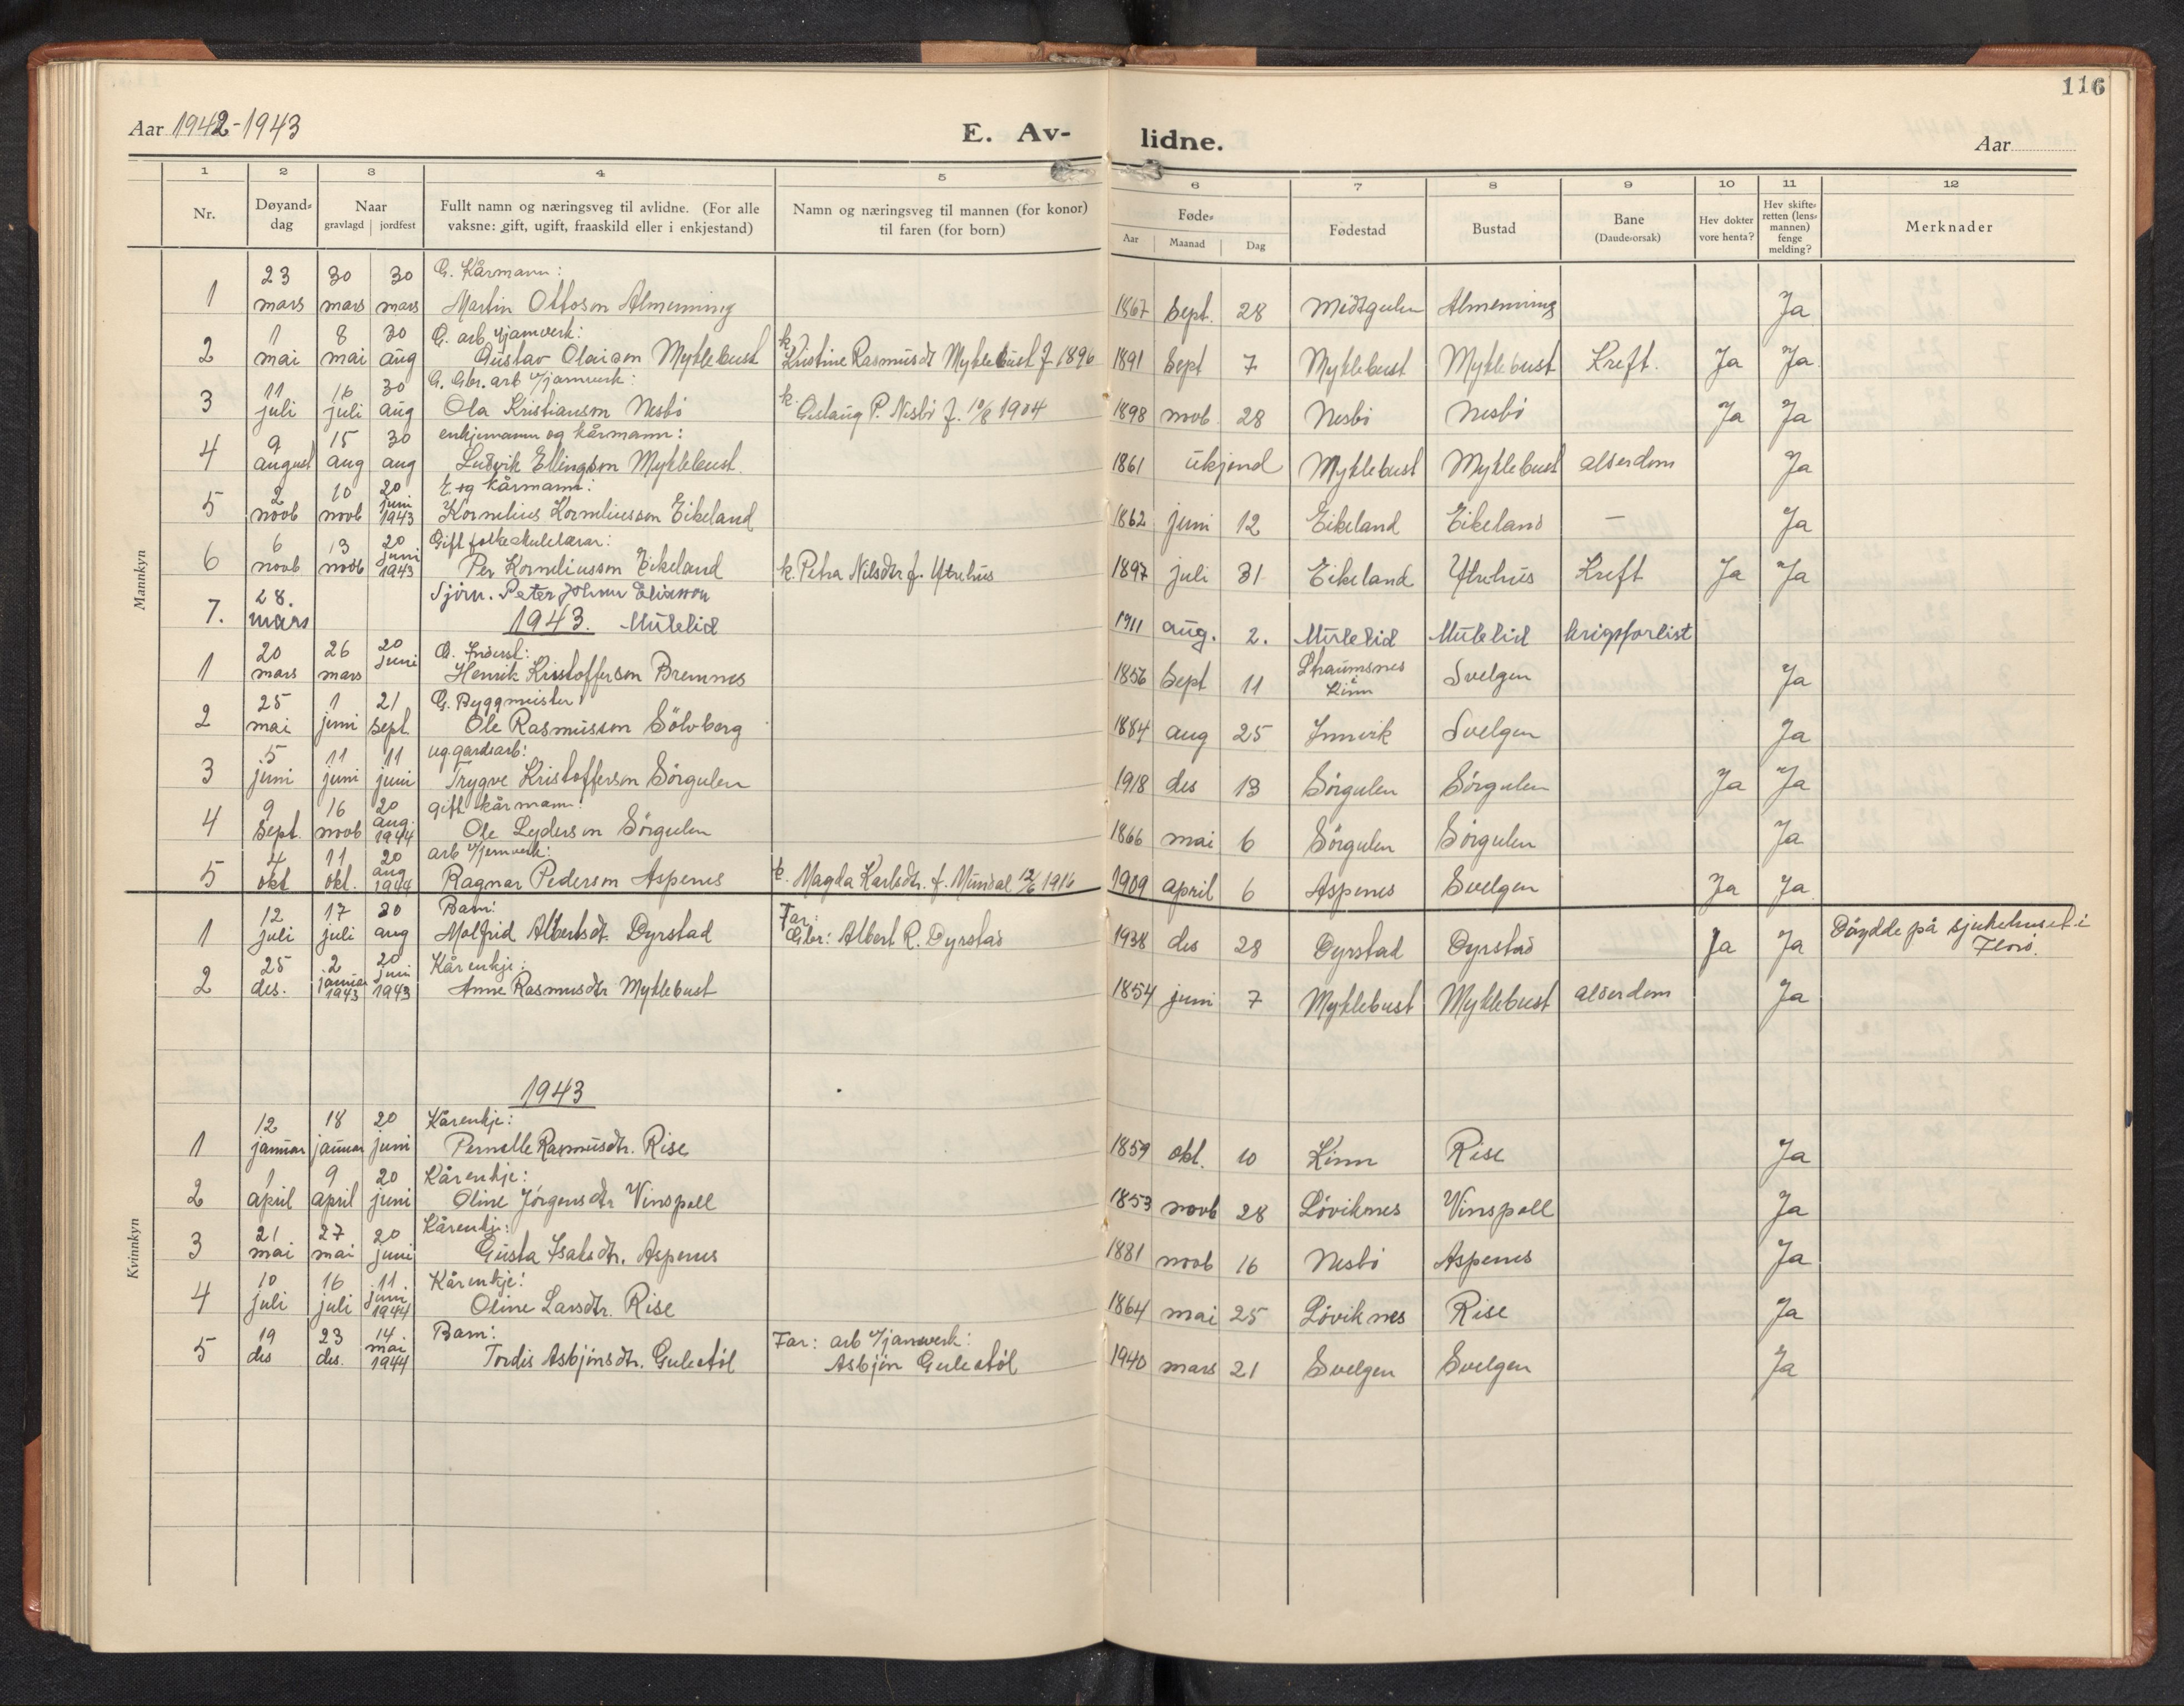 116
Aar 1942-1943
E. Av-
lidne.
Aar
1 2 3 4 5 6 7 8 9 10 11 12
Nr.
Døyand-
dag
Naar
gravlagd | jordfest
Fullt namn og næringsveg til avlidne. (For alle
vaksne: gift, ugift, fraaskild eller i enkjestand)
Namn og næringsveg til mannen (for konor)
til faren (for born)
Føde-
Aar Maanad Dag
Fødestad
Bustad
Bane
(Daude-orsak)
Hev dokter
vore henta?
Hev skifte-
retten (lens-
mannen)
fenge
melding?
Merknader
Mannkyn
23 30 30 G. Kårmann:
1 mars mars mars Martin Ottoson Almenning 1867 Sept. 28 Midtgulen Almenning Ja
1 8 30 G. arb. v/jarnverk: k.
2 mai mai aug Gustav Olaison Myklebust Kristine Rasmusdt Myklebust f 1896 1891 Sept 7 Myklebust Myklebust Kreft. Ja Ja
11 16 30 G. Gbr. arb v/jarnverk:
3 juli juli aug Ola Kristianson Nesbö k. Aslaug P. Nesbö f. 10/8 1904 1898 novb. 28 Nesbö Nesbö Ja Ja
9 15 30 enkjemann og kårmann:
4 august aug aug Ludvik Ellingson Myklebust. 1861 ukjend Myklebust Myklebust alderdom Ja
2 10 20 E. og kårmann:
5 novb novb juni 1943 Kornelius Korneliusson Eikeland 1862 juni 12 Eikeland Eikeland — Ja
6 13 20 Gift folkeskulelærar:
6 novb novb juni 1943 Per Korneliusson Eikeland k. Petra Nilsdtr f. Ytrehus 1897 juli 31 Eikeland Ytrehus Kreft Ja Ja
28. Sjöm. Peter Johan Eliasson
7. mars 1943. Mulelid 1911 aug. 2. Mulelid Mulelid krigsforlist
20 26 20 G. Inderst:
1 mars mars juni Henrik Kristofferson Bremnes 1856 Sept 11 Straumsnes i Kinn Svelgen Ja
25 1 21 G. Byggmeister
2 mai juni Sept. Ole Rasmusson Sölvberg 1884 aug 25 Innvik Svelgen Ja
5 11 11 ug. gardsarb:
3 juni juni juni Trygve Kristofferson Sörgulen 1918 des 13 Sörgulen Sörgulen Ja Ja
9 16 20 gift kårmann:
4 Sept. novb aug. 1944 Ole Lyderson Sörgulen 1866 mai 6 Sörgulen Sörgulen Ja
4 11 20 arb v/jernverk:
5 okt okt. aug 1944 Ragnar Pederson Aspenes k. Magda Karlsdtr. f. Mundal 12/6 1916 1909 april 6 Aspenes Svelgen Ja Ja
Kvinnkyn
12 17 30 Barn: Far:
1 juli juli aug Molfrid Albertsdt. Dyrstad Gbr: Albert R. Dyrstad 1938 des 28 Dyrstad Dyrstad Ja Ja Döydde på sjukehuset i
Florö.
25 2 20 Kårenkje:
2 des. januar 1943 juni 1943 Anne Rasmusdtr Myklebust 1854 juni 7 Myklebust Myklebust alderdom Ja
1943
12 18 20 Kårenkje:
1 januar januar juni Pernelle Rasmusdtr. Rise 1859 okt. 10 Kinn Rise Ja
1 9 20 Kårenkje:
2 april april juni Oline Jörgensdtr Vinspoll 1853 novb 28 Löviknes Vinspoll Ja
21 27 20 Kårenkje:
3 mai mai juni Gusta Isaksdtr. Aspenes 1881 novb 16 Nesbö Aspenes Ja
10 16 11. Kårenkje:
4 juli juli juni 1944 Oline Larsdtr. Rise 1864 mai 25 Löviknes Rise Ja
19 23 14. Barn: Far: arb v/jarnverk:
5 des des. mai 1944 Tordis Asbjönsdtr. Gulestöl Asbjön Gulestöl 1940 mars 21 Svelgen Svelgen Ja